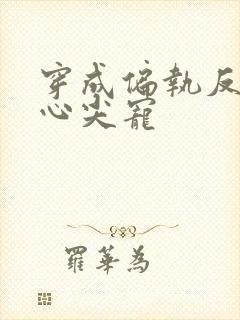 穿成偏執反
心尖寵
羅華為